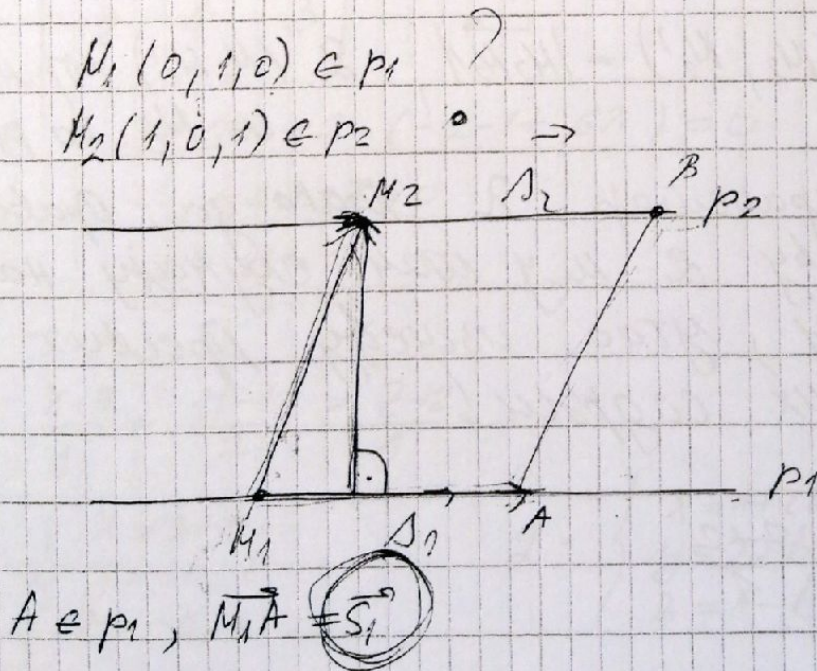 M₁(0,1,0) ∈ p₁ ?
M₂(1,0,1) ∈ p₂
M₂ s₂ B p₂
M₁ s₁ A p₁
A ∈ p₁, M₁A = S₁